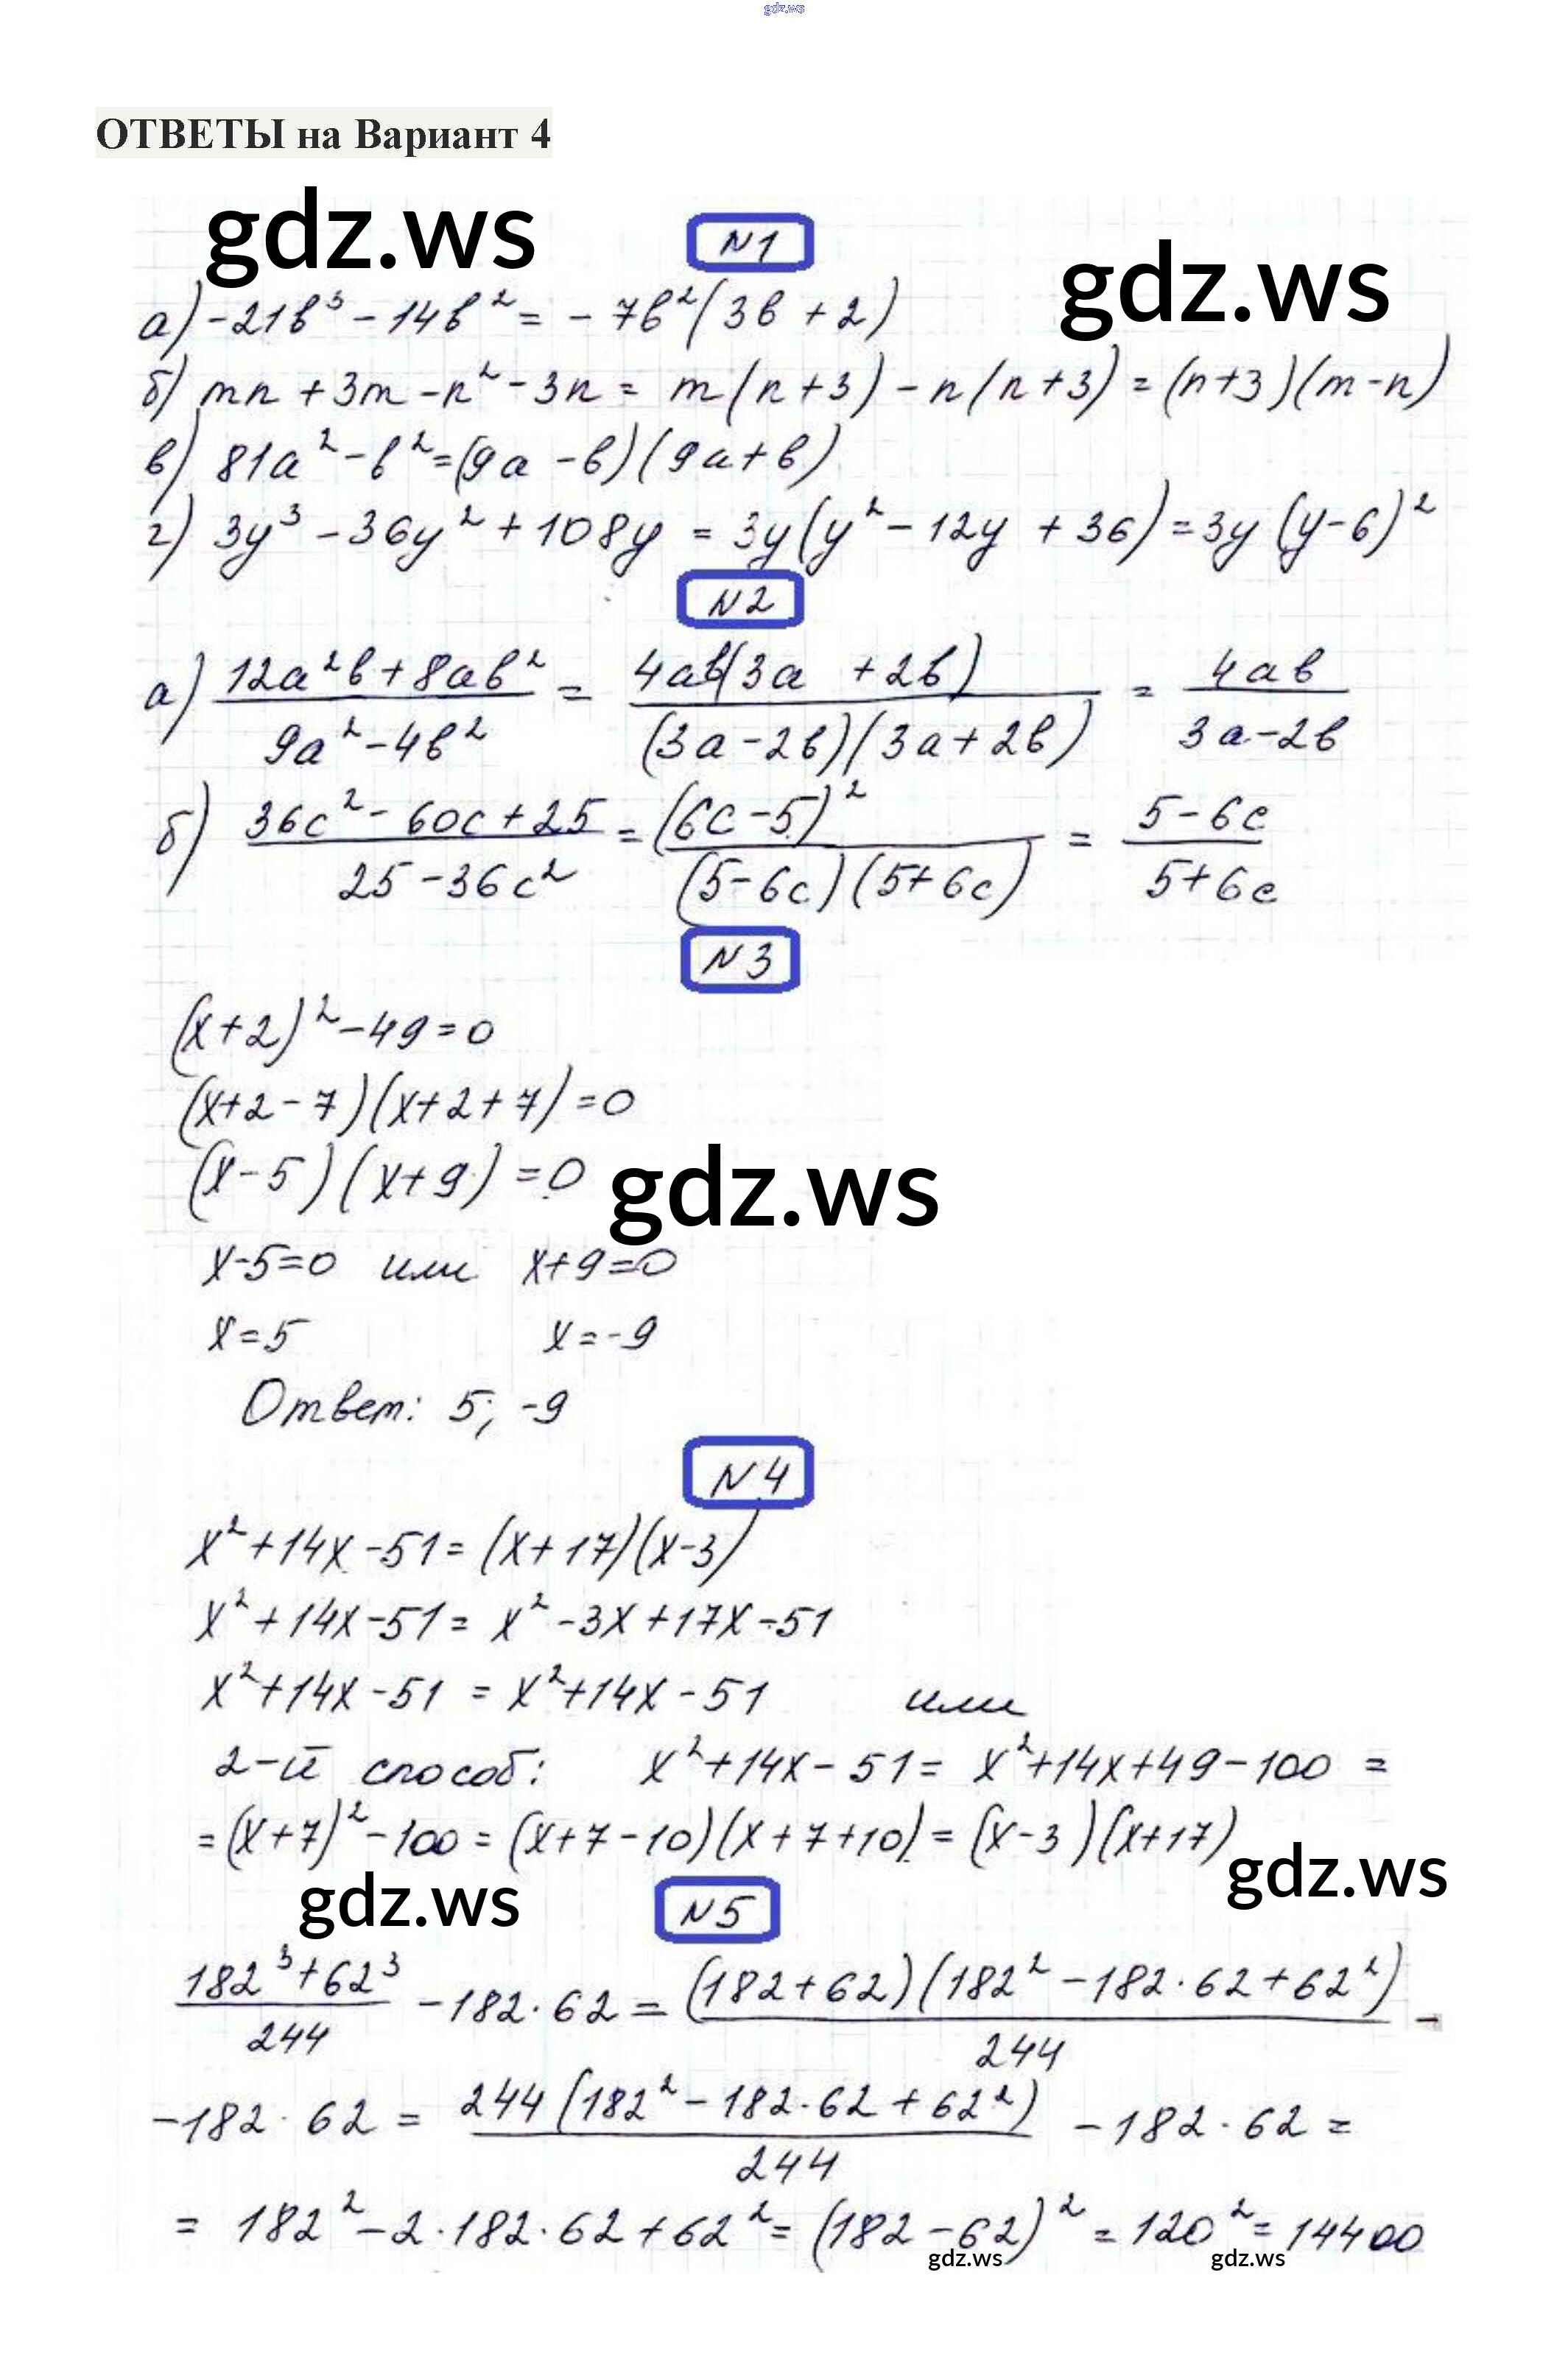 gdz.ws
ОТВЕТЫ на Вариант 4
gdz.ws
N1
gdz.ws
а) -21b³ - 14b² = - 7b²(3b + 2)
б) mn + 3m - n² - 3n = m(n+3) - n(n+3) = (n+3)(m-n)
в) 81a² - b² = (9a - b)(9a + b)
г) 3y³ - 36y² + 108y = 3y(y² - 12y + 36) = 3y(y-6)²
N2
а) (12a²b + 8ab²)/(9a² - 4b²) = 4ab(3a + 2b)/((3a - 2b)(3a + 2b)) = 4ab/(3a - 2b)
б) (36c² - 60c + 25)/(25 - 36c²) = (6c - 5)²/((5 - 6c)(5 + 6c)) = (5 - 6c)/(5 + 6c)
N3
(x+2)² - 49 = 0
(x+2-7)(x+2+7) = 0
(x-5)(x+9) = 0
gdz.ws
x-5=0 или x+9=0
x=5 x=-9
Ответ: 5; -9
N4
x² + 14x - 51 = (x+17)(x-3)
x² + 14x - 51 = x² - 3x + 17x - 51
x² + 14x - 51 = x² + 14x - 51 или
2-й способ: x² + 14x - 51 = x² + 14x + 49 - 100 =
= (x+7)² - 100 = (x+7-10)(x+7+10) = (x-3)(x+17)
gdz.ws
gdz.ws
N5
(182³ + 62³)/244 - 182·62 = (182+62)(182² - 182·62 + 62²)/244 -
- 182·62 = 244(182² - 182·62 + 62²)/244 - 182·62 =
= 182² - 2·182·62 + 62² = (182 - 62)² = 120² = 14400
gdz.ws
gdz.ws